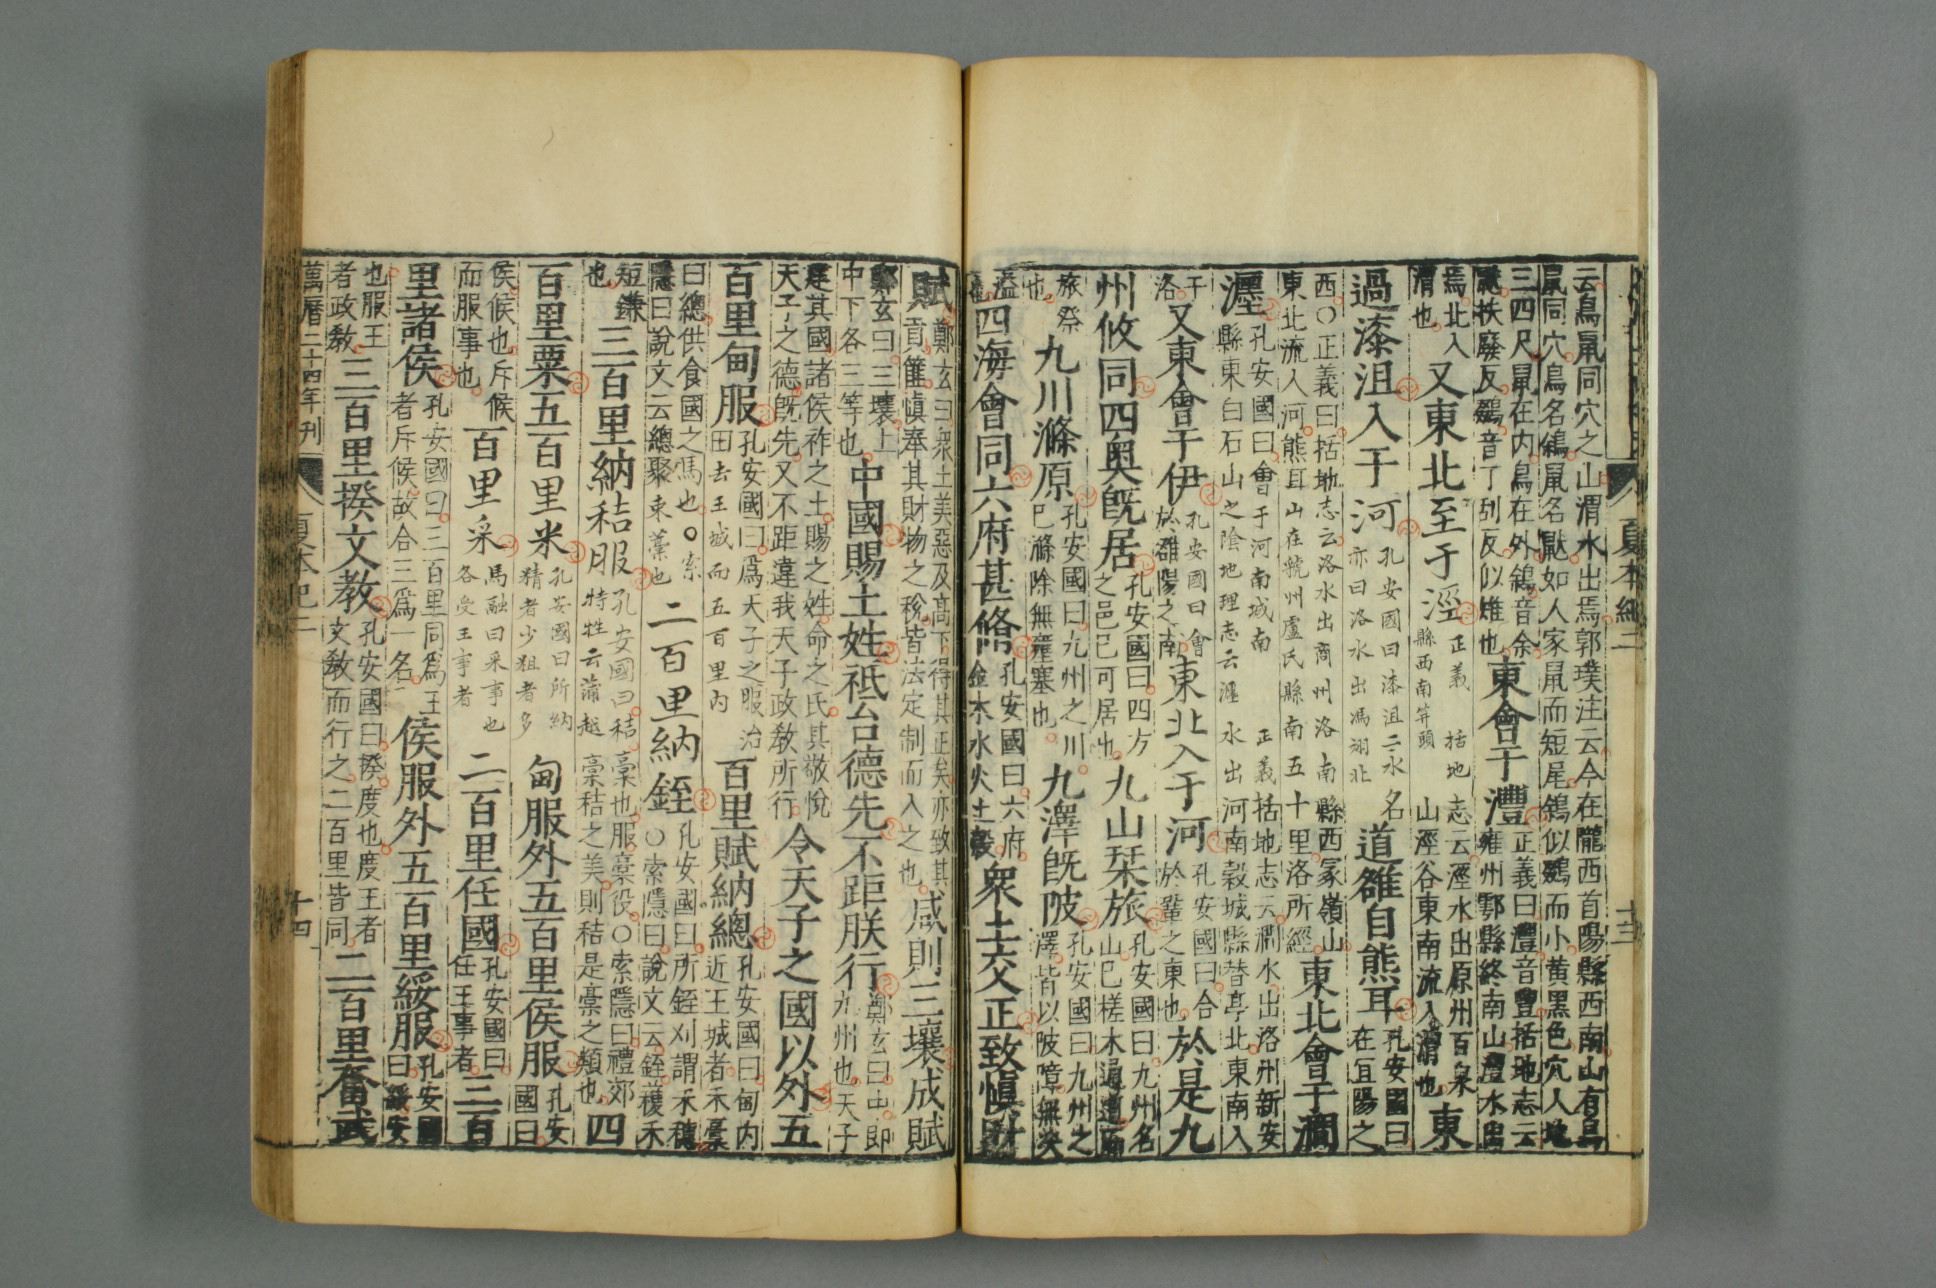 夏本紀二
十三
云鳥鼠同穴之山渭水出焉郭璞注云今在隴西首陽縣西南山有鳥
鼠同穴鳥名鵌鼠名鼵如人家鼠而短尾鵌似鵽而小黃黑色穴入地
三四尺鼠在内鳥在外鵌音余鼵扶廢反鵽音丁刮反似雉也東會于灃正義曰灃音豐括地志云雍州鄠縣終南山灃水出
焉北入渭也又東北至于涇正義括地志云涇水出原州百泉縣西南笄頭山涇谷東南流入渭也東
過漆沮入于河孔安國曰漆沮二水名亦曰洛水出馮翊北道雒自熊耳孔安國曰在宜陽之
西○正義曰括地志云洛水出商州洛南縣西冢嶺山東北流入河熊耳山在虢州盧氏縣南五十里洛所經東北會于澗
瀍孔安國曰會于河南城南正義括地志云澗水出洛州新安縣東白石山之陰地理志云瀍水出河南穀城縣朁亭北東南入
于洛又東會于伊孔安國曰會於雒陽之南東北入于河孔安國曰合於鞏之東也於是九
州攸同四奧旣居孔安國曰四方之邑已可居也九山栞旅孔安國曰九州名山已槎木通道而
旅祭也九川滌原孔安國曰九州之川已滌除無壅塞也九澤旣陂孔安國曰九州之澤皆以陂障無決
溢也四海會同六府甚脩孔安國曰六府金木水火土穀衆土交正致愼財
賦鄭玄曰衆土美惡及高下得其正矣亦致其貢篚愼奉其財物之稅皆法定制而入之也咸則三壤成賦
鄭玄曰三壤上中下各三等也中國賜土姓祗台德先不距朕行鄭玄曰中即九州也天子
建其國諸侯祚之土賜之姓命之氏其敬悅天子之德旣先又不距違我天子政敎所行令天子之國以外五
百里甸服孔安國曰爲天子之服治田去王城面五百里內百里賦納總孔安國曰甸內近王城者禾稾
曰總供食國之馬也○索隱曰說文云總聚束稾也二百里納銍孔安國曰所銍刈謂禾穗○索隱曰說文云銍穫禾
短鎌也三百里納秸服孔安國曰秸稾也服稾役○索隱曰禮郊特牲云蒲越稾秸之美則秸是稾之類也四
百里粟五百里米孔安國曰所納精者少粗者多甸服外五百里侯服孔安國曰
侯候也斥候而服事也百里采馬融曰采事也各受王事者二百里任國孔安國曰任王事者三百
里諸侯孔安國曰三百里同爲王者斥候故合三爲一名侯服外五百里綏服孔安國曰綏安
也服王者政敎三百里揆文教孔安國曰揆度也度王者文敎而行之二百里皆同二百里奮武
萬曆二十四年刊
夏本紀二
十四